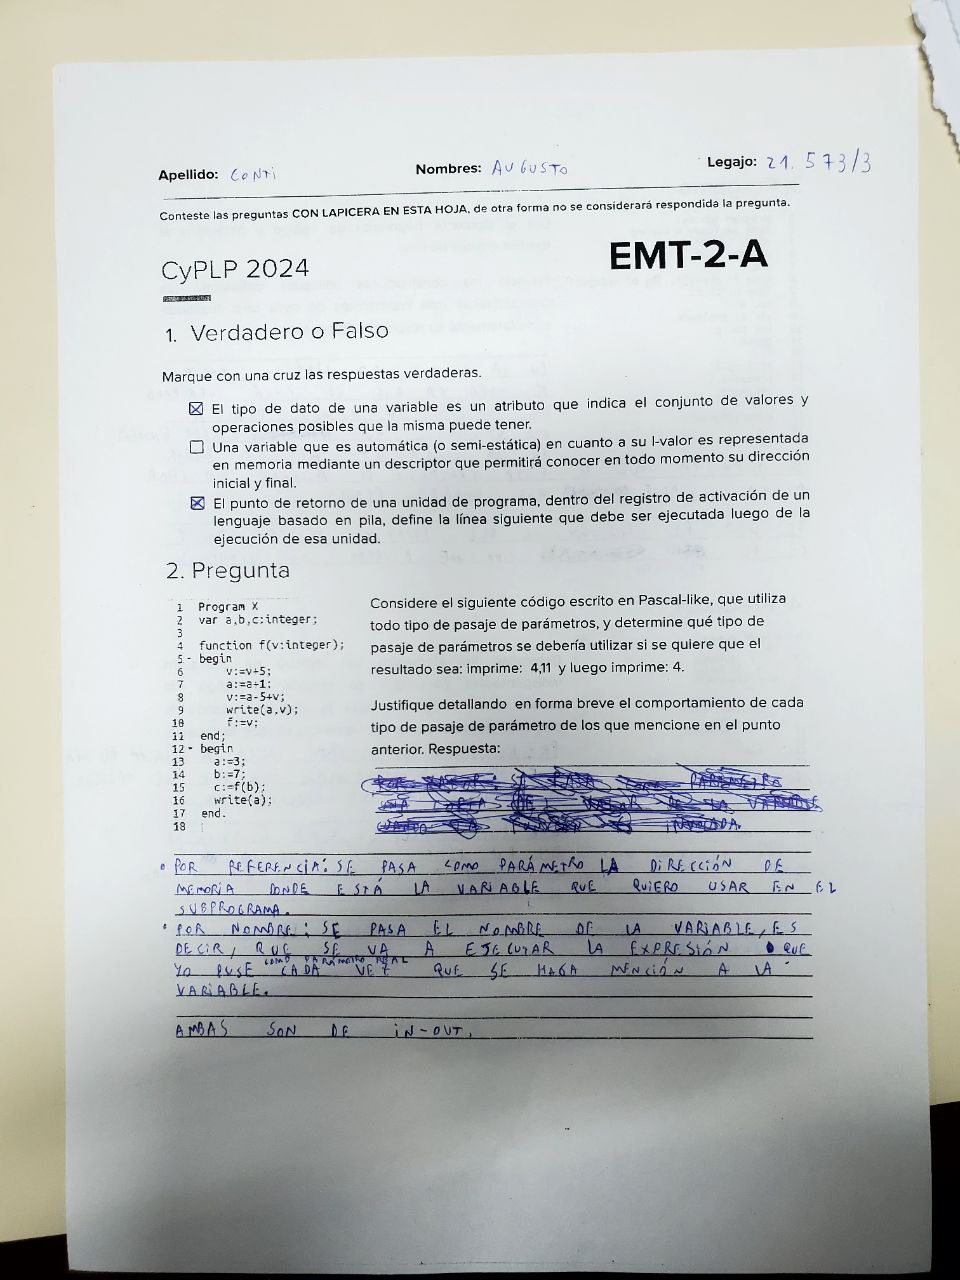 Apellido: CONTI Nombres: AUGUSTO Legajo: 21.573/3
Conteste las preguntas CON LAPICERA EN ESTA HOJA, de otra forma no se considerará respondida la pregunta.
CyPLP 2024 EMT-2-A
1. Verdadero o Falso
Marque con una cruz las respuestas verdaderas.
☒ El tipo de dato de una variable es un atributo que indica el conjunto de valores y
operaciones posibles que la misma puede tener.
☐ Una variable que es automática (o semi-estática) en cuanto a su l-valor es representada
en memoria mediante un descriptor que permitirá conocer en todo momento su dirección
inicial y final.
☒ El punto de retorno de una unidad de programa, dentro del registro de activación de un
lenguaje basado en pila, define la línea siguiente que debe ser ejecutada luego de la
ejecución de esa unidad.
2. Pregunta
1 Program X
2 var a,b,c:integer;
3
4 function f(v:integer);
5 - begin
6 v:=v+5;
7 a:=a+1;
8 v:=a-5+v;
9 write(a,v);
10 f:=v;
11 end;
12 - begin
13 a:=3;
14 b:=7;
15 c:=f(b);
16 write(a);
17 end.
18
Considere el siguiente código escrito en Pascal-like, que utiliza
todo tipo de pasaje de parámetros, y determine qué tipo de
pasaje de parámetros se debería utilizar si se quiere que el
resultado sea: imprime: 4,11 y luego imprime: 4.
Justifique detallando en forma breve el comportamiento de cada
tipo de pasaje de parámetro de los que mencione en el punto
anterior. Respuesta:
• POR REFERENCIA: SE PASA COMO PARÁMETRO LA DIRECCIÓN DE
MEMORIA DONDE ESTÁ LA VARIABLE QUE QUIERO USAR EN EL
SUBPROGRAMA.
• POR NOMBRE: SE PASA EL NOMBRE DE LA VARIABLE, ES
DECIR, QUE SE VA A EJECUTAR LA EXPRESIÓN QUE
YO PUSE COMO PARÁMETRO REAL CADA VEZ QUE SE HAGA MENCIÓN A LA
VARIABLE.
AMBAS SON DE IN-OUT.